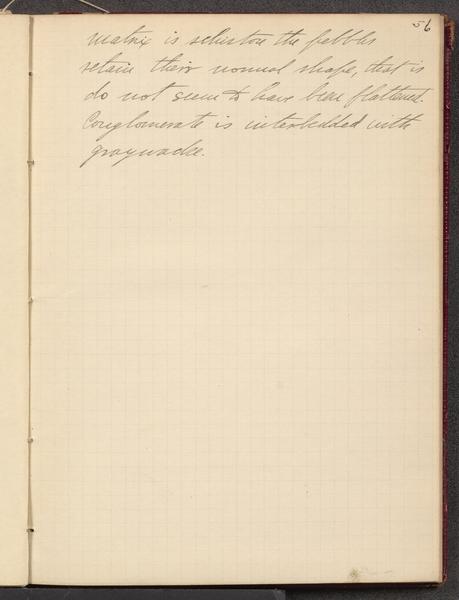 56
matrix is schistose the pebbles
retain their normal shape, that is
do not seem to have been flattened.
Conglomerate is interbedded with
graywacke.